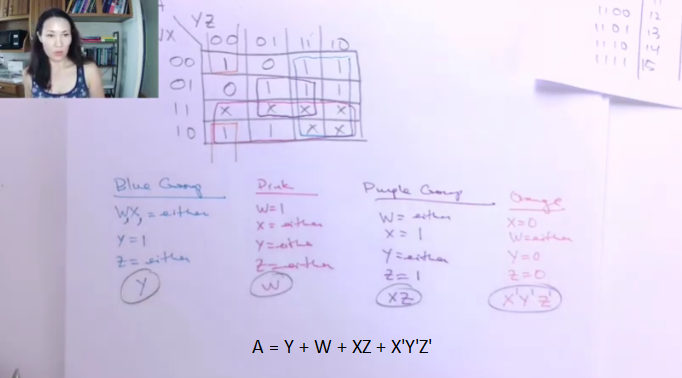 YZ
WX
00 01 11 10
00 1 0 1 1
01 0 1 1 1
11 X X X X
10 1 1 X X
1100 12
1101 13
1110 14
1111 15
Blue Group
W,X, = either
Y = 1
Z = either
Y
Pink
W = 1
X = either
Y = eithe
Z = either
W
Purple Group
W = either
X = 1
Y = either
Z = 1
XZ
Orange
X = 0
W = either
Y = 0
Z = 0
X'Y'Z'
A = Y + W + XZ + X'Y'Z'